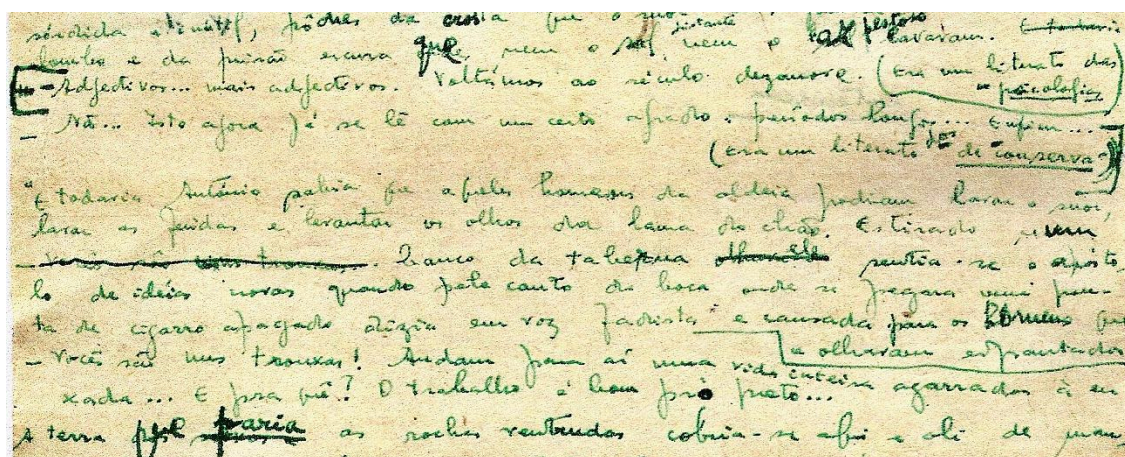 sórdida e inútil, pôdres da crosta que o suor
distante
lombo e da prisão escura que nem o sol nem o lavaram.
- Adjectivos... mais adjectivos. Voltámos ao século dezanove. (Era um literato das
psicologias)
- Não... Isto agora já se lê com um certo agrado. períodos longos... Enfim...
(Era um literato de conserva)
"E todavia António sabia que aqueles homens da aldeia podiam lavar o suor,
lavar as feridas e levantar os olhos da lama do chão. Estirado num
- Vocês são uns trouxas... banco da taberna sentia-se o apósto-
lo de ideias novas quando pelo canto da boca onde se pegara uma pon-
ta de cigarro apagado dizia em voz fadista e cansada para os homens que
e olhavam espantados
- Vocês são uns trouxas! Andam para aí uma vida inteira agarrados à en
xada... E pra quê? O trabalho é bom pró preto...
A terra que paria as rochas ventrudas cobria-se aqui e ali de